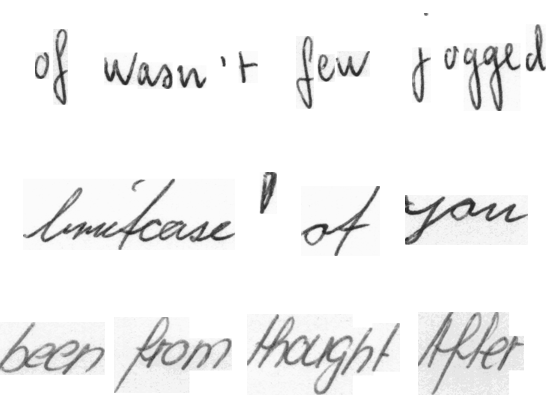 of wasn't few jogged
' of you
been from thought After